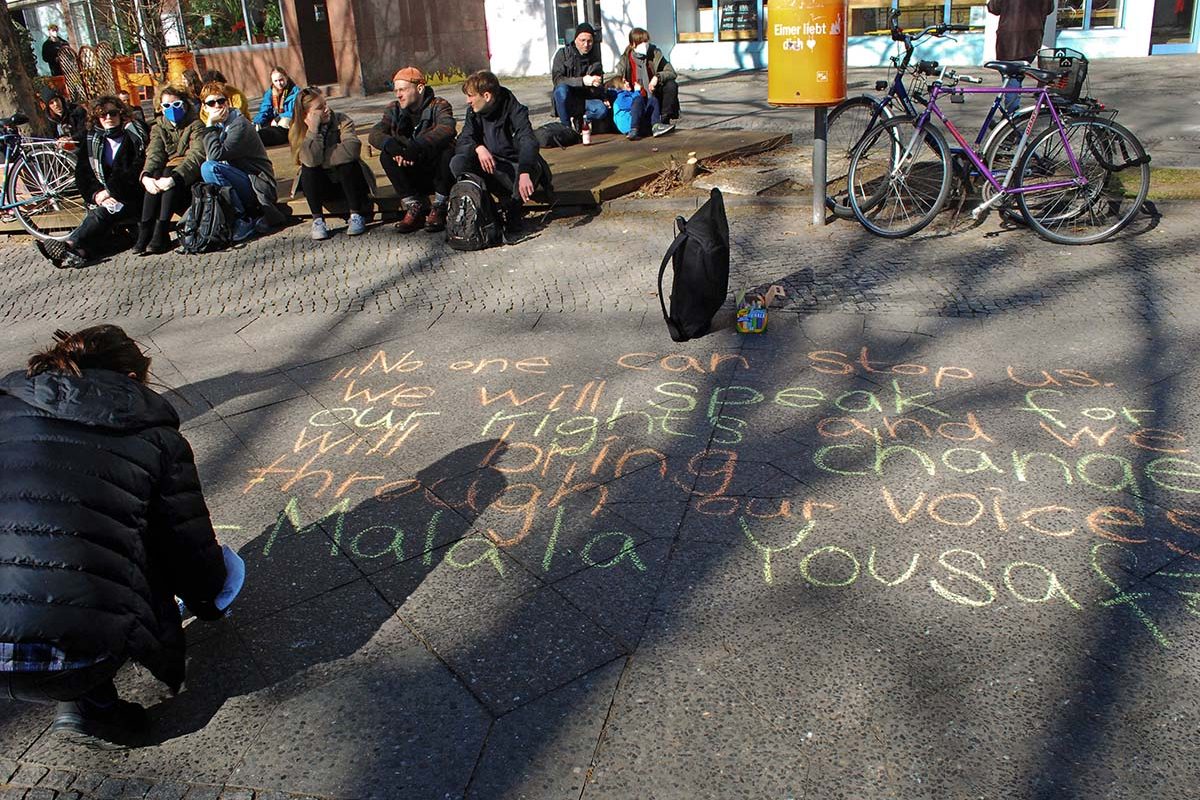 Eimer liebt
dich
„No one can stop us.
We will speak for
our rights and we
will bring change
through our voices
- Malala Yousaf